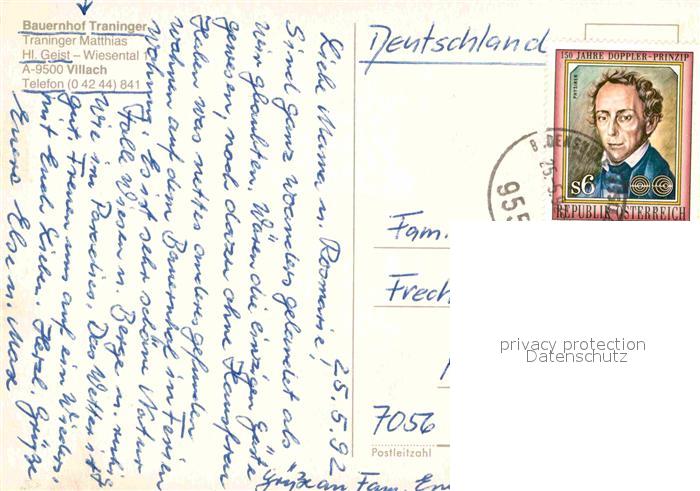 Bauernhof Traninger
Traninger Matthias
Hl. Geist – Wiesental 1
A-9500 Villach
Telefon (0 42 44) 841
25.5.92
Liebe Mama u.
Sind ganz woanders gelandet als
wir glaubten. Wären die einzigen Gäste
gewesen, noch dazu ohne Hausfrau
Haben was nettes anderes gefunden
wohnen auf dem Bauernhof in Ferien
wohnung. Es ist sehr schöne Natur
tolle Wiesen u. Berge u. ruhig
wie im Paradies. Das Wetter ist
gut. Freuen uns auf ein Wieders.
mit Euch Lieben. Herzl. Grüße
Eure Else u. Max
Grüße an Fam.
Deutschland
150 JAHRE DOPPLER-PRINZIP
s6
REPUBLIK ÖSTERREICH
25.5
955
Fam.
Frech
7056
Postleitzahl
privacy protection
Datenschutz